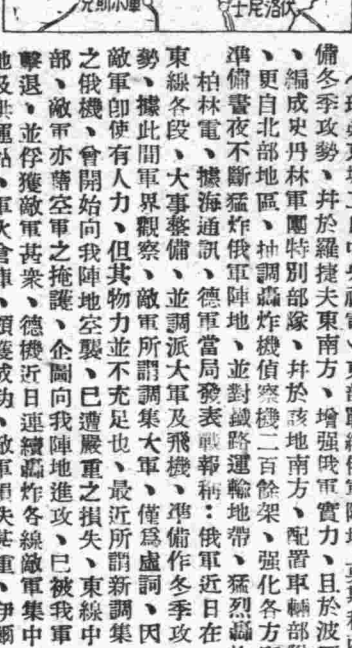 伏洛尼士
庫尔斯克
備冬季攻勢、幷於羅捷夫東南方、增强俄軍實力、且於波
、編成史丹林軍團特別部隊、幷於該地南方、配置車輛部
、更自北部地區、抽調轟炸機偵察機二百餘架、强化各方
準備晝夜不斷猛炸俄軍陣地、並對鐵路運輸地帶、猛烈轟
柏林電、據海通訊、德軍當局發表戰報稱：俄軍近日在
東線各段、大事整備、並調派大軍及飛機、準備作冬季攻
勢、據此間軍界觀察、敵軍所謂調集大軍、僅爲虛詞、因
敵軍卽使有人力、但其物力並不充足也、最近所謂新調集
之俄機、曾開始向我陣地空襲、已遭嚴重之損失、東線中
部、敵軍亦藉空軍之掩護、企圖向我陣地進攻、已被我軍
擊退、並俘獲敵軍甚衆、德機近日連續轟炸各線敵軍集中